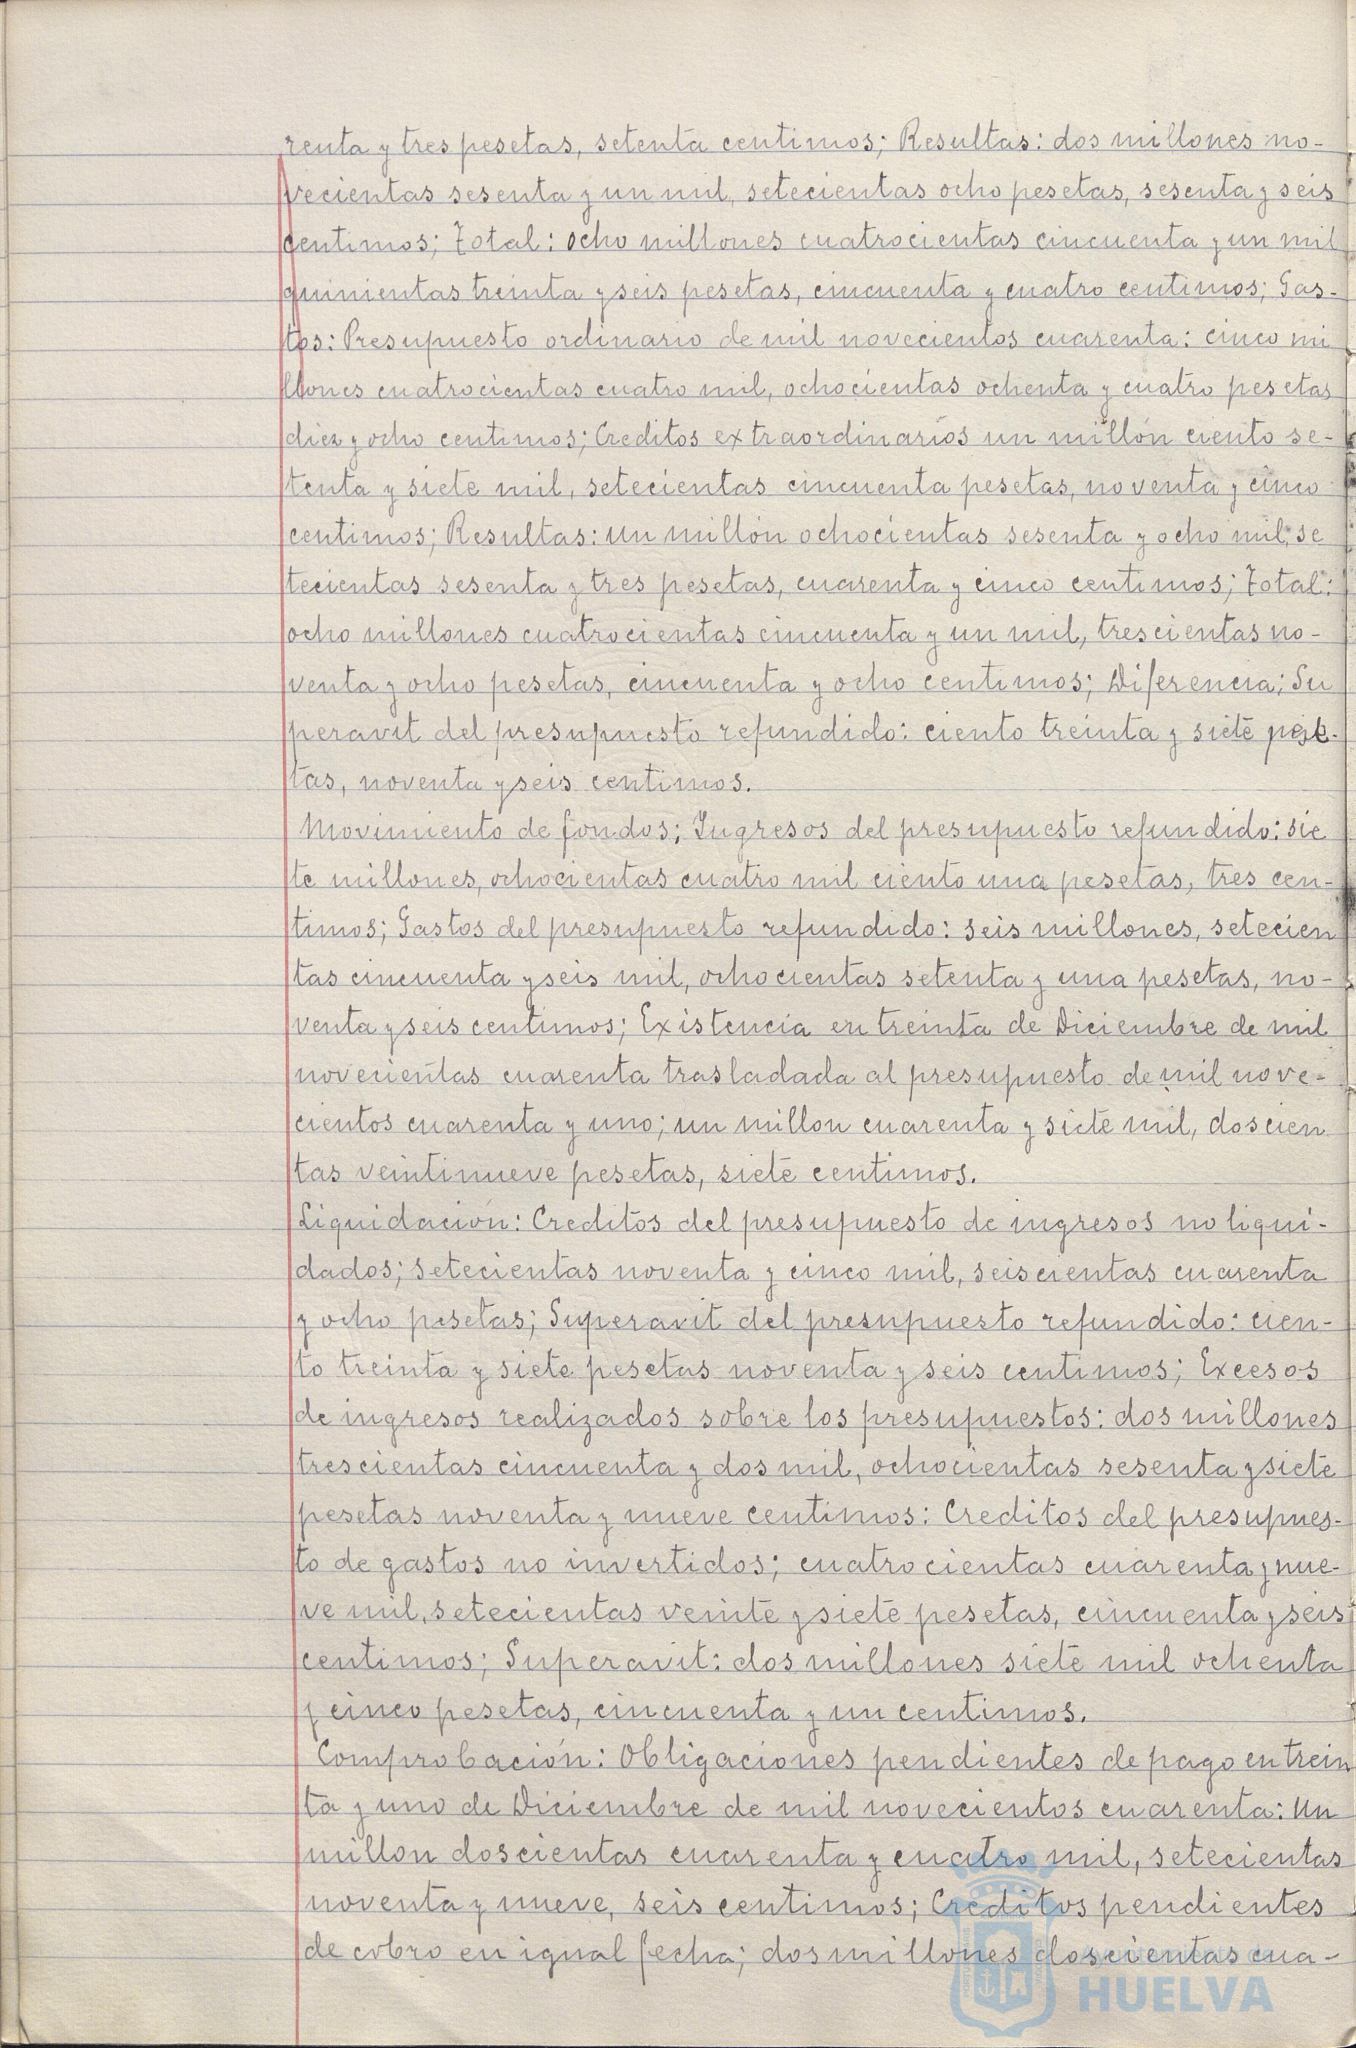 renta y tres pesetas, setenta centimos; Resultas: dos millones no-
vecientas sesenta y un mil, setecientas ocho pesetas, sesenta y seis
centimos; Total: ocho millones cuatrocientas cincuenta y un mil
quinientas treinta y seis pesetas, cincuenta y cuatro centimos; Gas-
tos: Presupuesto ordinario de mil novecientos cuarenta: cinco mi
llones cuatrocientas cuatro mil, ochocientas ochenta y cuatro pesetas
diez y ocho centimos; Creditos extraordinarios un millón ciento se-
tenta y siete mil, setecientas cincuenta pesetas, noventa y cinco
centimos; Resultas: un millón ochocientas sesenta y ocho mil, se
tecientas sesenta y tres pesetas, cuarenta y cinco centimos; Total:
ocho millones cuatrocientas cincuenta y un mil, trescientas no-
venta y ocho pesetas, cincuenta y ocho centimos; Diferencia; Su
peravit del presupuesto refundido: ciento treinta y siete pese-
tas, noventa y seis centimos.
Movimiento de fondos; Ingresos del presupuesto refundido: sie
te millones, ochocientas cuatro mil ciento una pesetas, tres cen-
timos; Gastos del presupuesto refundido: seis millones, setecien
tas cincuenta y seis mil, ochocientas setenta y una pesetas, no-
venta y seis centimos; Existencia en treinta de Diciembre de mil
novecientas cuarenta trasladada al presupuesto de mil nove-
cientos cuarenta y uno; un millon cuarenta y siete mil, doscien
tas veintinueve pesetas, siete centimos.
Liquidación: Creditos del presupuesto de ingresos no liqui-
dados; setecientas noventa y cinco mil, seiscientas cuarenta
y ocho pesetas; Superavit del presupuesto refundido: cien-
to treinta y siete pesetas noventa y seis centimos; Excesos
de ingresos realizados sobre los presupuestos: dos millones
trescientas cincuenta y dos mil, ochocientas sesenta y siete
pesetas noventa y nueve centimos: Creditos del presupues-
to de gastos no invertidos; cuatrocientas cuarenta y nue-
ve mil, setecientas veinte y siete pesetas, cincuenta y seis
centimos; Superavit: dos millones siete mil ochenta
y cinco pesetas, cincuenta y un centimos.
Comprobación: Obligaciones pendientes de pago en trein
ta y uno de Diciembre de mil novecientos cuarenta: Un
millon doscientas cuarenta y cuatro mil, setecientas
noventa y nueve, seis centimos; Creditos pendientes
de cobro en igual fecha; dos millones doscientas cua-
HUELVA